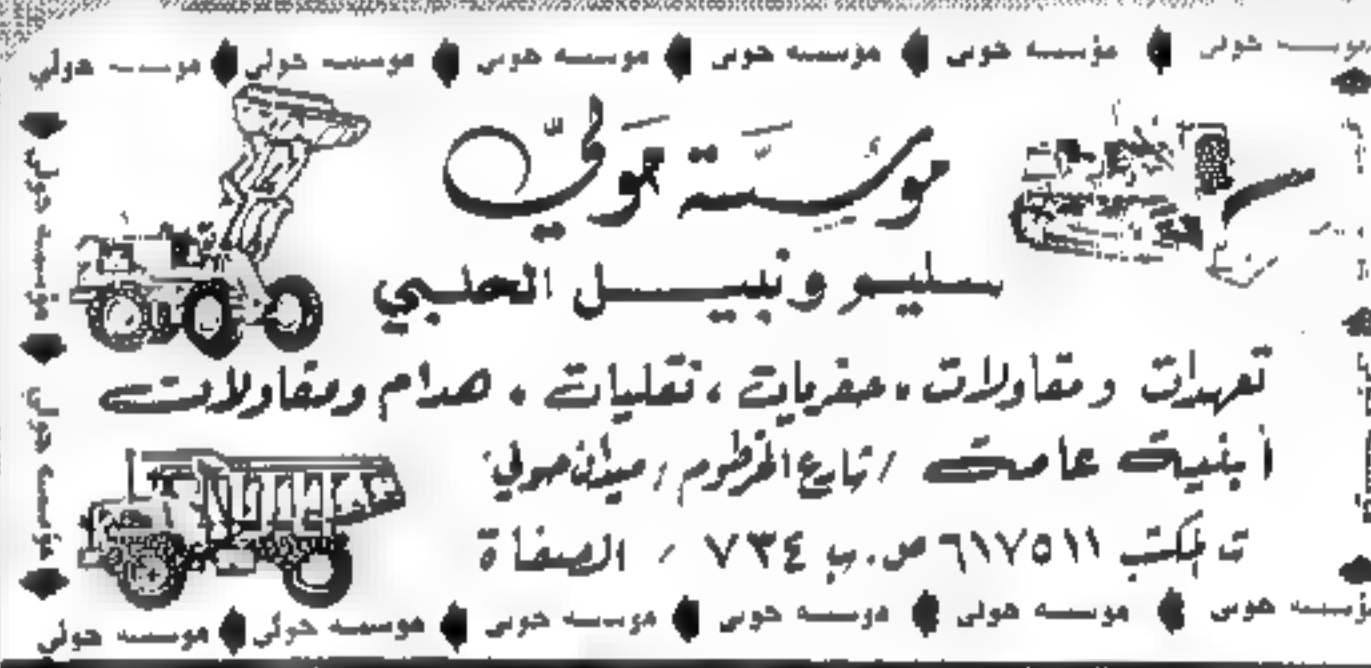 مؤسسه حولي مؤسسه حولي مؤسسه حولي مؤسسه حولي مؤسسه حولي مؤسسه حولي
مؤسسة حولي
سليم ونبيل الحلبي
تعهدات ومقاولات، حفريات، نقليات، هدام ومقاولات
أبنية عامة / شارع الخرطوم / ميدان حولي
ت المكتب ٦١٧٥١١ ص.ب ٧٣٤ / الصفاة
مؤسسه حولي
مؤسسه حولي
مؤسسه حولي مؤسسه حولي مؤسسه حولي مؤسسه حولي مؤسسه حولي مؤسسه حولي